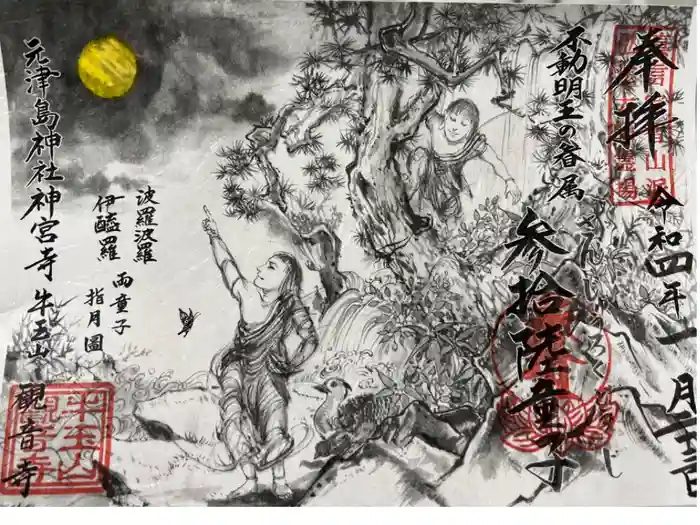 奉拝
令和四年一月十三日
不動明王の眷属
さんじゅうろくどうじ
参拾陸童子
波羅波羅
伊醯羅
両童子
指月圖
元津島神社神宮寺 牛玉山 觀音寺
牛玉山
觀音寺